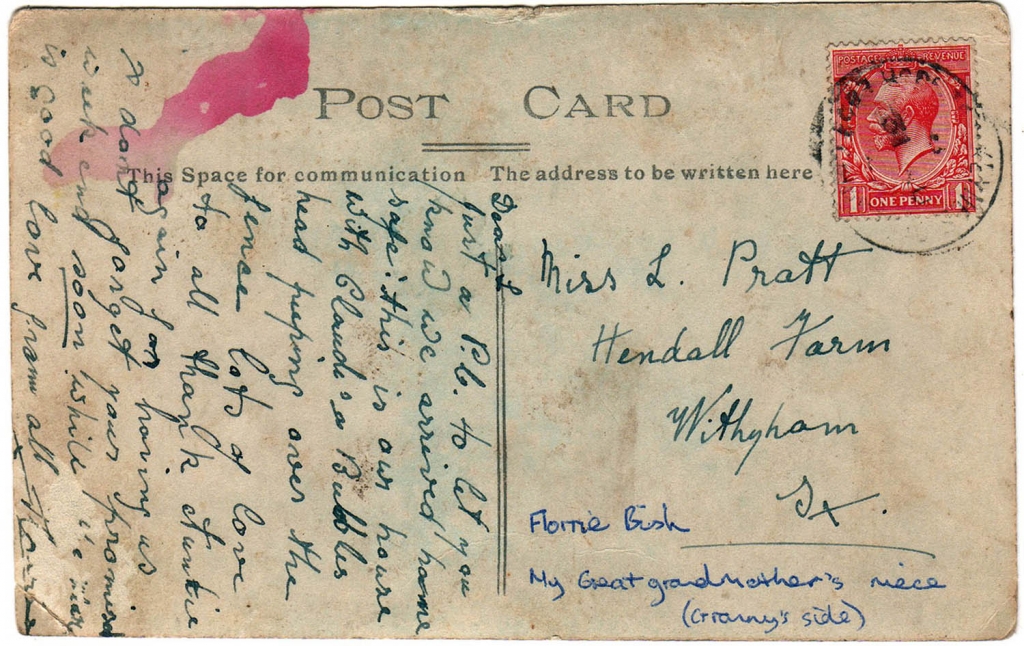 POST CARD
This Space for communication
The address to be written here
POSTAGE REVENUE
1 ONE PENNY 1
Dear L
Just a P.C. to let you
know we arrived home
safe. this is our house
with Claude & Bubbles
head peeping over the
fence lots of love
to all thank Auntie
again for having us
& dont forget your promised
week end soon while the
is good love from all
Miss L. Pratt
Hendall Farm
Withyham
Sx.
Florrie Bish
My Great grandmother's niece
(Granny's side)